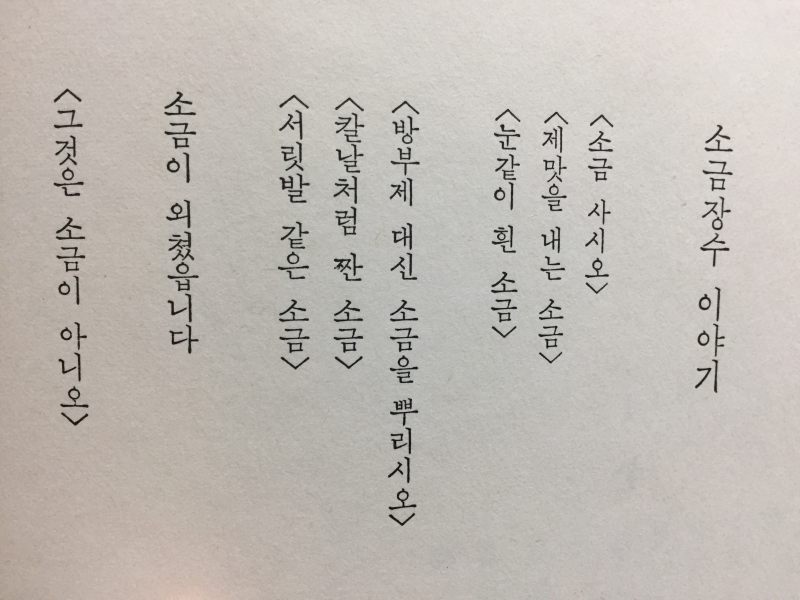 소금장수 이야기
<소금 사시오>
<제맛을 내는 소금>
<눈같이 흰 소금>
<방부제 대신 소금을 뿌리시오>
<칼날처럼 짠 소금>
<서릿발 같은 소금>
소금이 외쳤읍니다
<그것은 소금이 아니오>